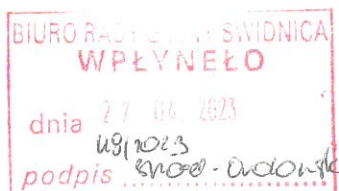 BIURO RADY GMINY ŚWIDNICA
WPŁYNĘŁO
dnia 27 04. 2023
49/2023
podpis